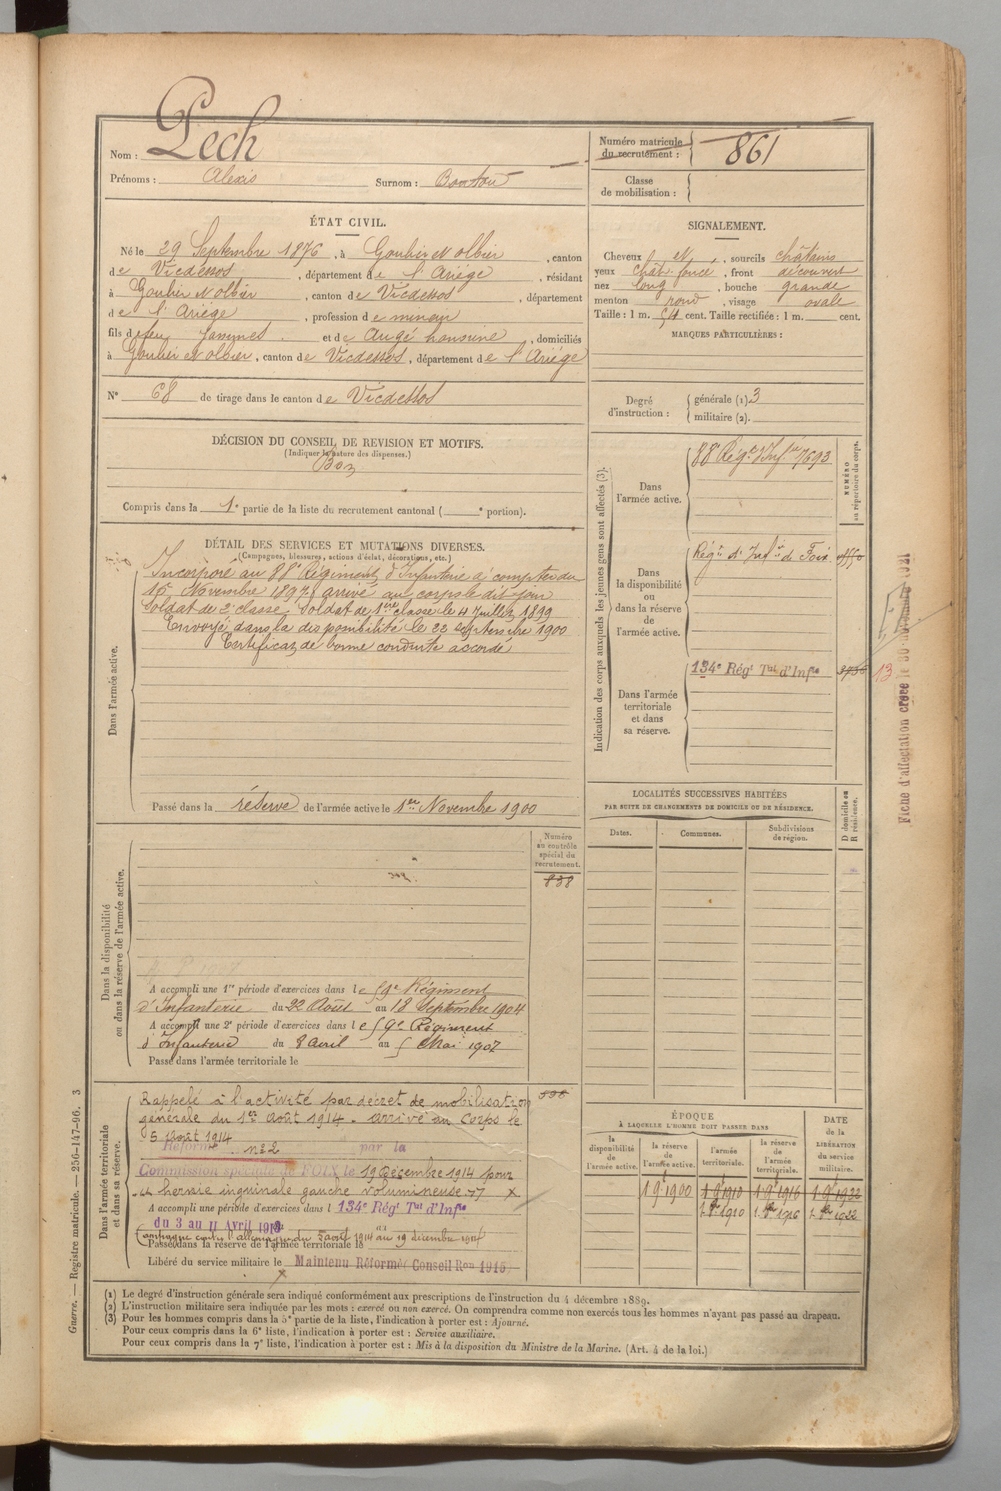 Nom : Pech
Prénoms : Alexis Surnom :
Numéro matricule du recrutement : 861
Classe de mobilisation :
ÉTAT CIVIL.
Né le 29 Septembre 1876, à Goulier et Olbier, canton
de Vicdessos, département de l'Ariége, résidant
à Goulier et Olbier, canton de Vicdessos, département
de l'Ariége, profession de mineur
fils de feu Jammes et de Augé, domiciliés
à Goulier et Olbier, canton de Vicdessos, département de l'Ariége
N° 68 de tirage dans le canton de Vicdessos
SIGNALEMENT.
Cheveux et, sourcils châtains
yeux chât. foncé, front découvert
nez long, bouche grande
menton rond, visage ovale
Taille : 1 m. 54 cent. Taille rectifiée : 1 m. cent.
MARQUES PARTICULIÈRES :
Degré d'instruction : générale (1). 3
militaire (2).
DÉCISION DU CONSEIL DE REVISION ET MOTIFS.
(Indiquer la nature des dispenses.)
Bon
Compris dans la 1e partie de la liste du recrutement cantonal ( e portion).
DÉTAIL DES SERVICES ET MUTATIONS DIVERSES.
(Campagnes, blessures, actions d'éclat, décorations, etc.)
Dans l'armée active.
Incorporé au 88e Régiment d'Infanterie à compter du
16 Novembre 1897, arrivé au corps le dit jour
Soldat de 2e classe. Soldat de 1ère classe le 4 Juillet 1899
Envoyé dans la disponibilité le 22 septembre 1900
Certificat de bonne conduite accordé
Passé dans la réserve de l'armée active le 1er Novembre 1900
Indication des corps auxquels les jeunes gens sont affectés (3).
NUMÉRO au répertoire du corps.
Dans l'armée active.
88e Régt d'Infie 7693
Dans la disponibilité ou dans la réserve de l'armée active.
Régt d'Infie de Foix
Dans l'armée territoriale et dans sa réserve.
134e Régt Tal d'Infie
13
Fiche d'affectation créée le 30
LOCALITÉS SUCCESSIVES HABITÉES
PAR SUITE DE CHANGEMENTS DE DOMICILE OU DE RÉSIDENCE.
Dates. Communes. Subdivisions de région.
D domicile ou R résidence.
Dans la disponibilité ou dans la réserve de l'armée active.
Numéro au contrôle spécial du recrutement.
838
A accompli une 1re période d'exercices dans le 59e Régiment
d'Infanterie du 22 Août au 18 Septembre 1904
A accompli une 2e période d'exercices dans le 59e Régiment
d'Infanterie du 8 avril au 5 Mai 1907
Passé dans l'armée territoriale le
Dans l'armée territoriale et dans sa réserve.
Rappelé à l'activité par décret de mobilisation
générale du 1er Août 1914. arrivé au Corps le
5 Août 1914
Réformé n° 2 par la
Commission spéciale de FOIX le 19 décembre 1914 pour
hernie inguinale gauche volumineuse
A accompli une période d'exercices dans l 134e Régt Tal d'Infie
du 3 au 11 Avril
Campagne contre l'allemagne du 5 aout 1914 au 19 décembre 1914
Passé dans la réserve de l'armée territoriale le
Libéré du service militaire le Maintenu Réformé Conseil Ron 1915
ÉPOQUE
À LAQUELLE L'HOMME DOIT PASSER DANS
la disponibilité de l'armée active.
la réserve de l'armée active.
l'armée territoriale.
la réserve de l'armée territoriale.
DATE de la LIBÉRATION du service militaire.
1 9e 1900 1 9e 1910 1 9e 1916 1 9e 1922
1 8bre 1910 1 8bre 1916 1 8bre 1922
(1) Le degré d'instruction générale sera indiqué conformément aux prescriptions de l'instruction du 4 décembre 1889.
(2) L'instruction militaire sera indiquée par les mots : exercé ou non exercé. On comprendra comme non exercés tous les hommes n'ayant pas passé au drapeau.
(3) Pour les hommes compris dans la 5e partie de la liste, l'indication à porter est : Ajourné.
Pour ceux compris dans la 6e liste, l'indication à porter est : Service auxiliaire.
Pour ceux compris dans la 7e liste, l'indication à porter est : Mis à la disposition du Ministre de la Marine. (Art. 4 de la loi.)
Guerre. — Registre matricule. — 256-147-96. 3